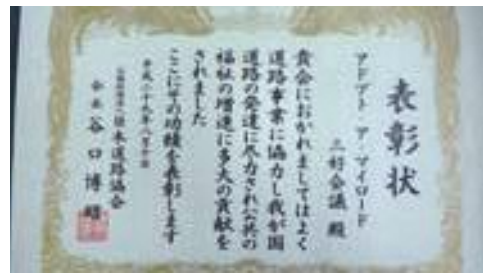 表彰状
アドプト・ア・マイロード
三好会議 殿
貴会におかれましてはよく
道路事業に協力し我が国
道路の発達に尽力され公共の
福祉の増進に多大の貢献を
されました
ここにその功績を表彰します
平成二十九年八月十日
日本道路協会
会長 谷口博昭